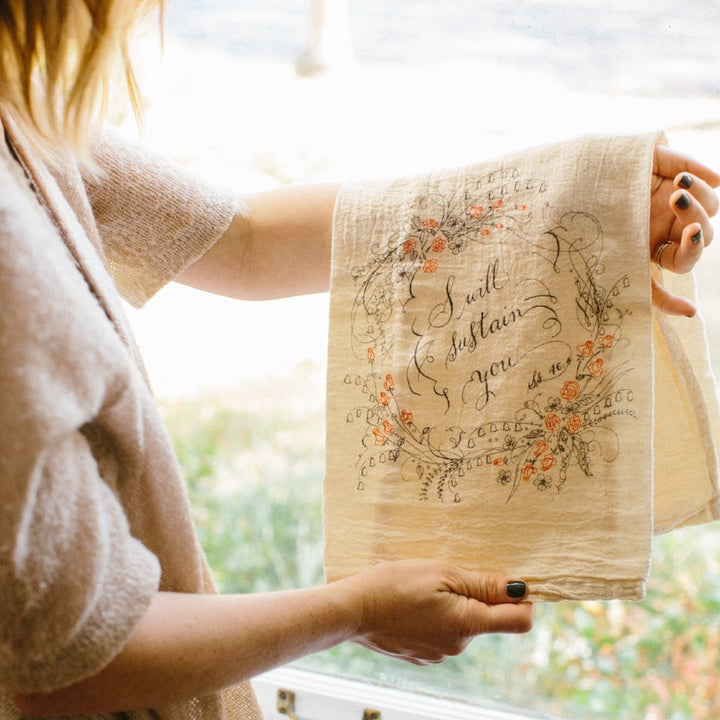 I will
sustain
you
Isa. 46.4